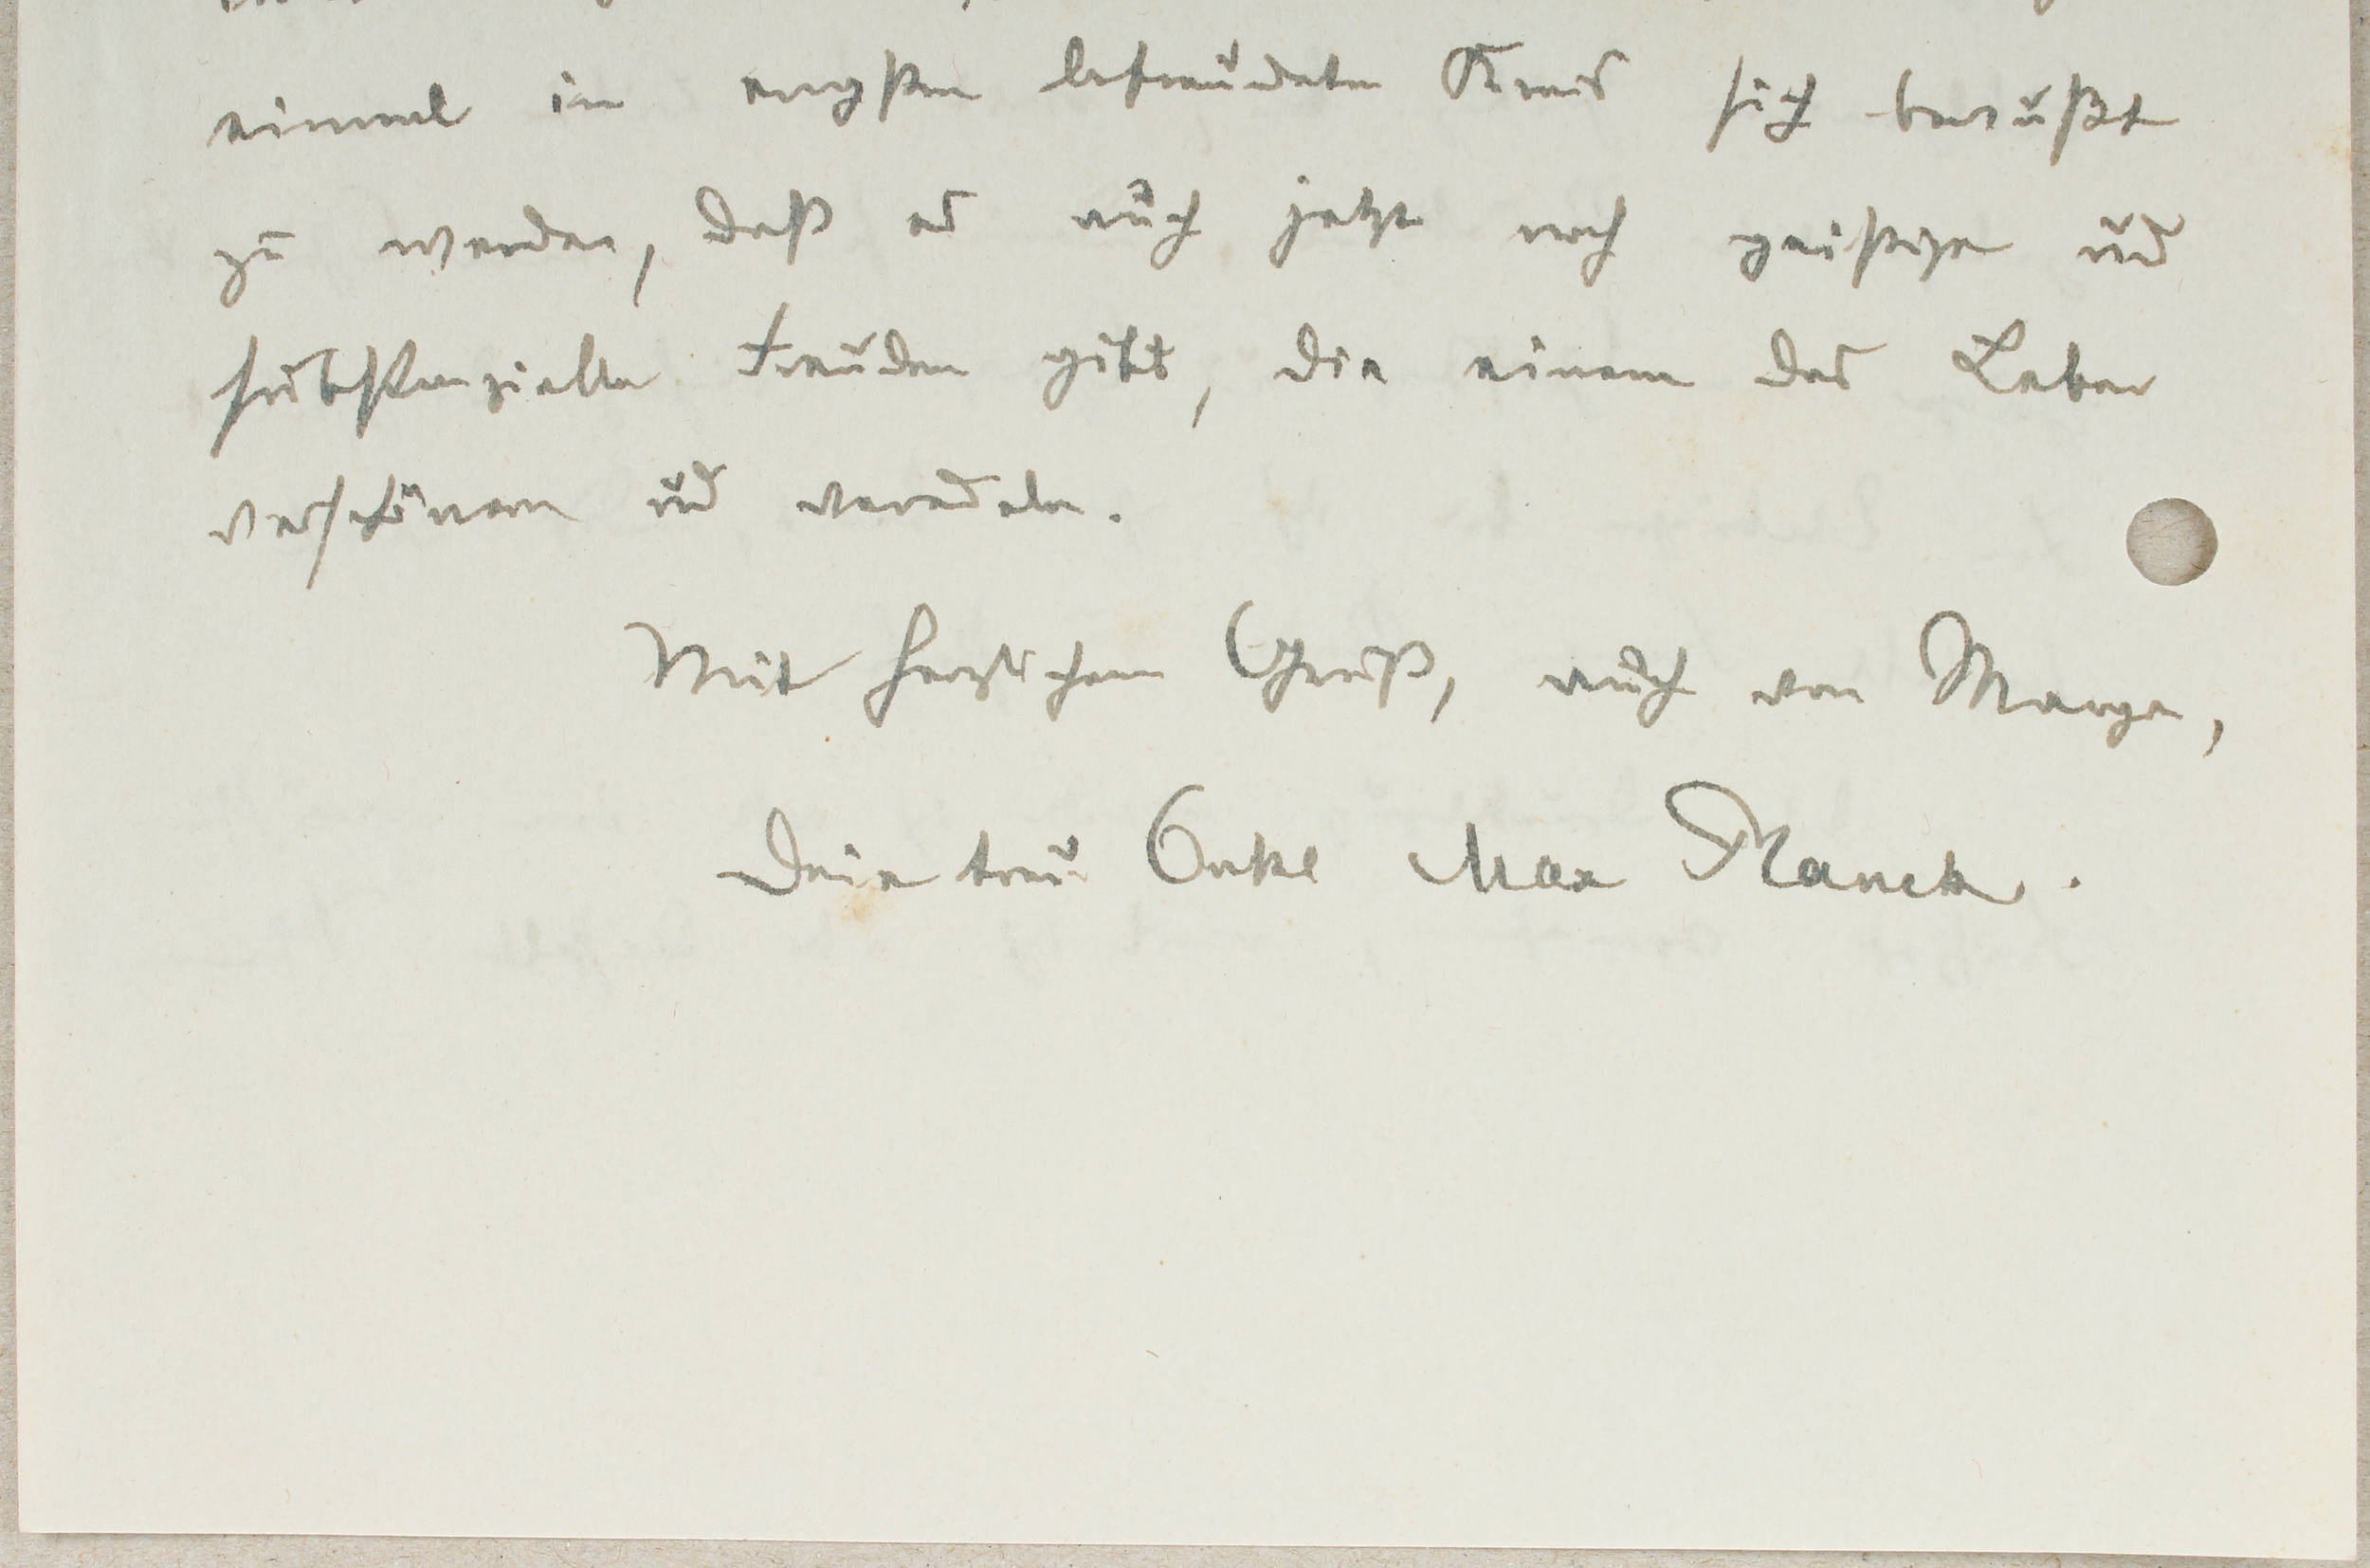 einmal in engsten befreundeten Kreis sich bewußt
zu werden, daß es auch jetzt noch geistige und
substanzielle Freuden gibt, die einem das Leben
verschönern und veredeln.
Mit herzlichem Gruß, auch von Marga,
Dein treuer Onkel Max Planck.